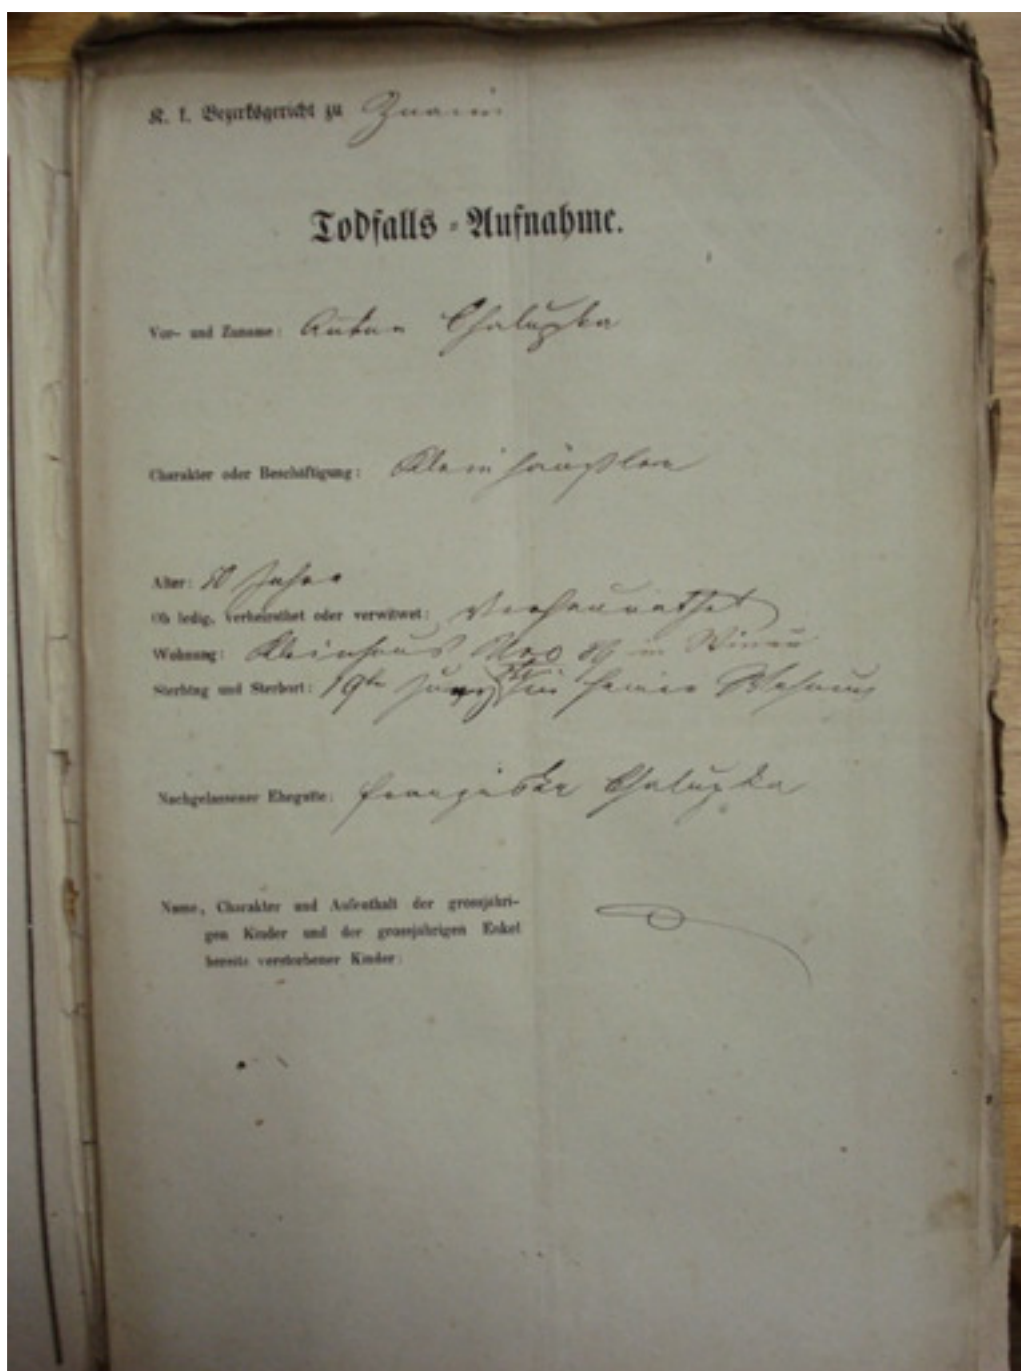 K. k. Bezirksgericht zu Znaim
Todfalls-Aufnahme.
Vor- und Zuname: Anton Chalupka
Charakter oder Beschäftigung: Kleinhäusler
Alter: 50 Jahre
Ob ledig, verheirathet oder verwitwet: Verheurathet
Wohnung: Kleinhaus Nro 89 in Winau
Sterbtag und Sterbort: 19te in seiner Wohnung
Nachgelassener Ehegatte: Franziska Chalupka
Name, Charakter und Aufenthalt der grossjähri-
gen Kinder und der grossjährigen Enkel
bereits verstorbener Kinder: